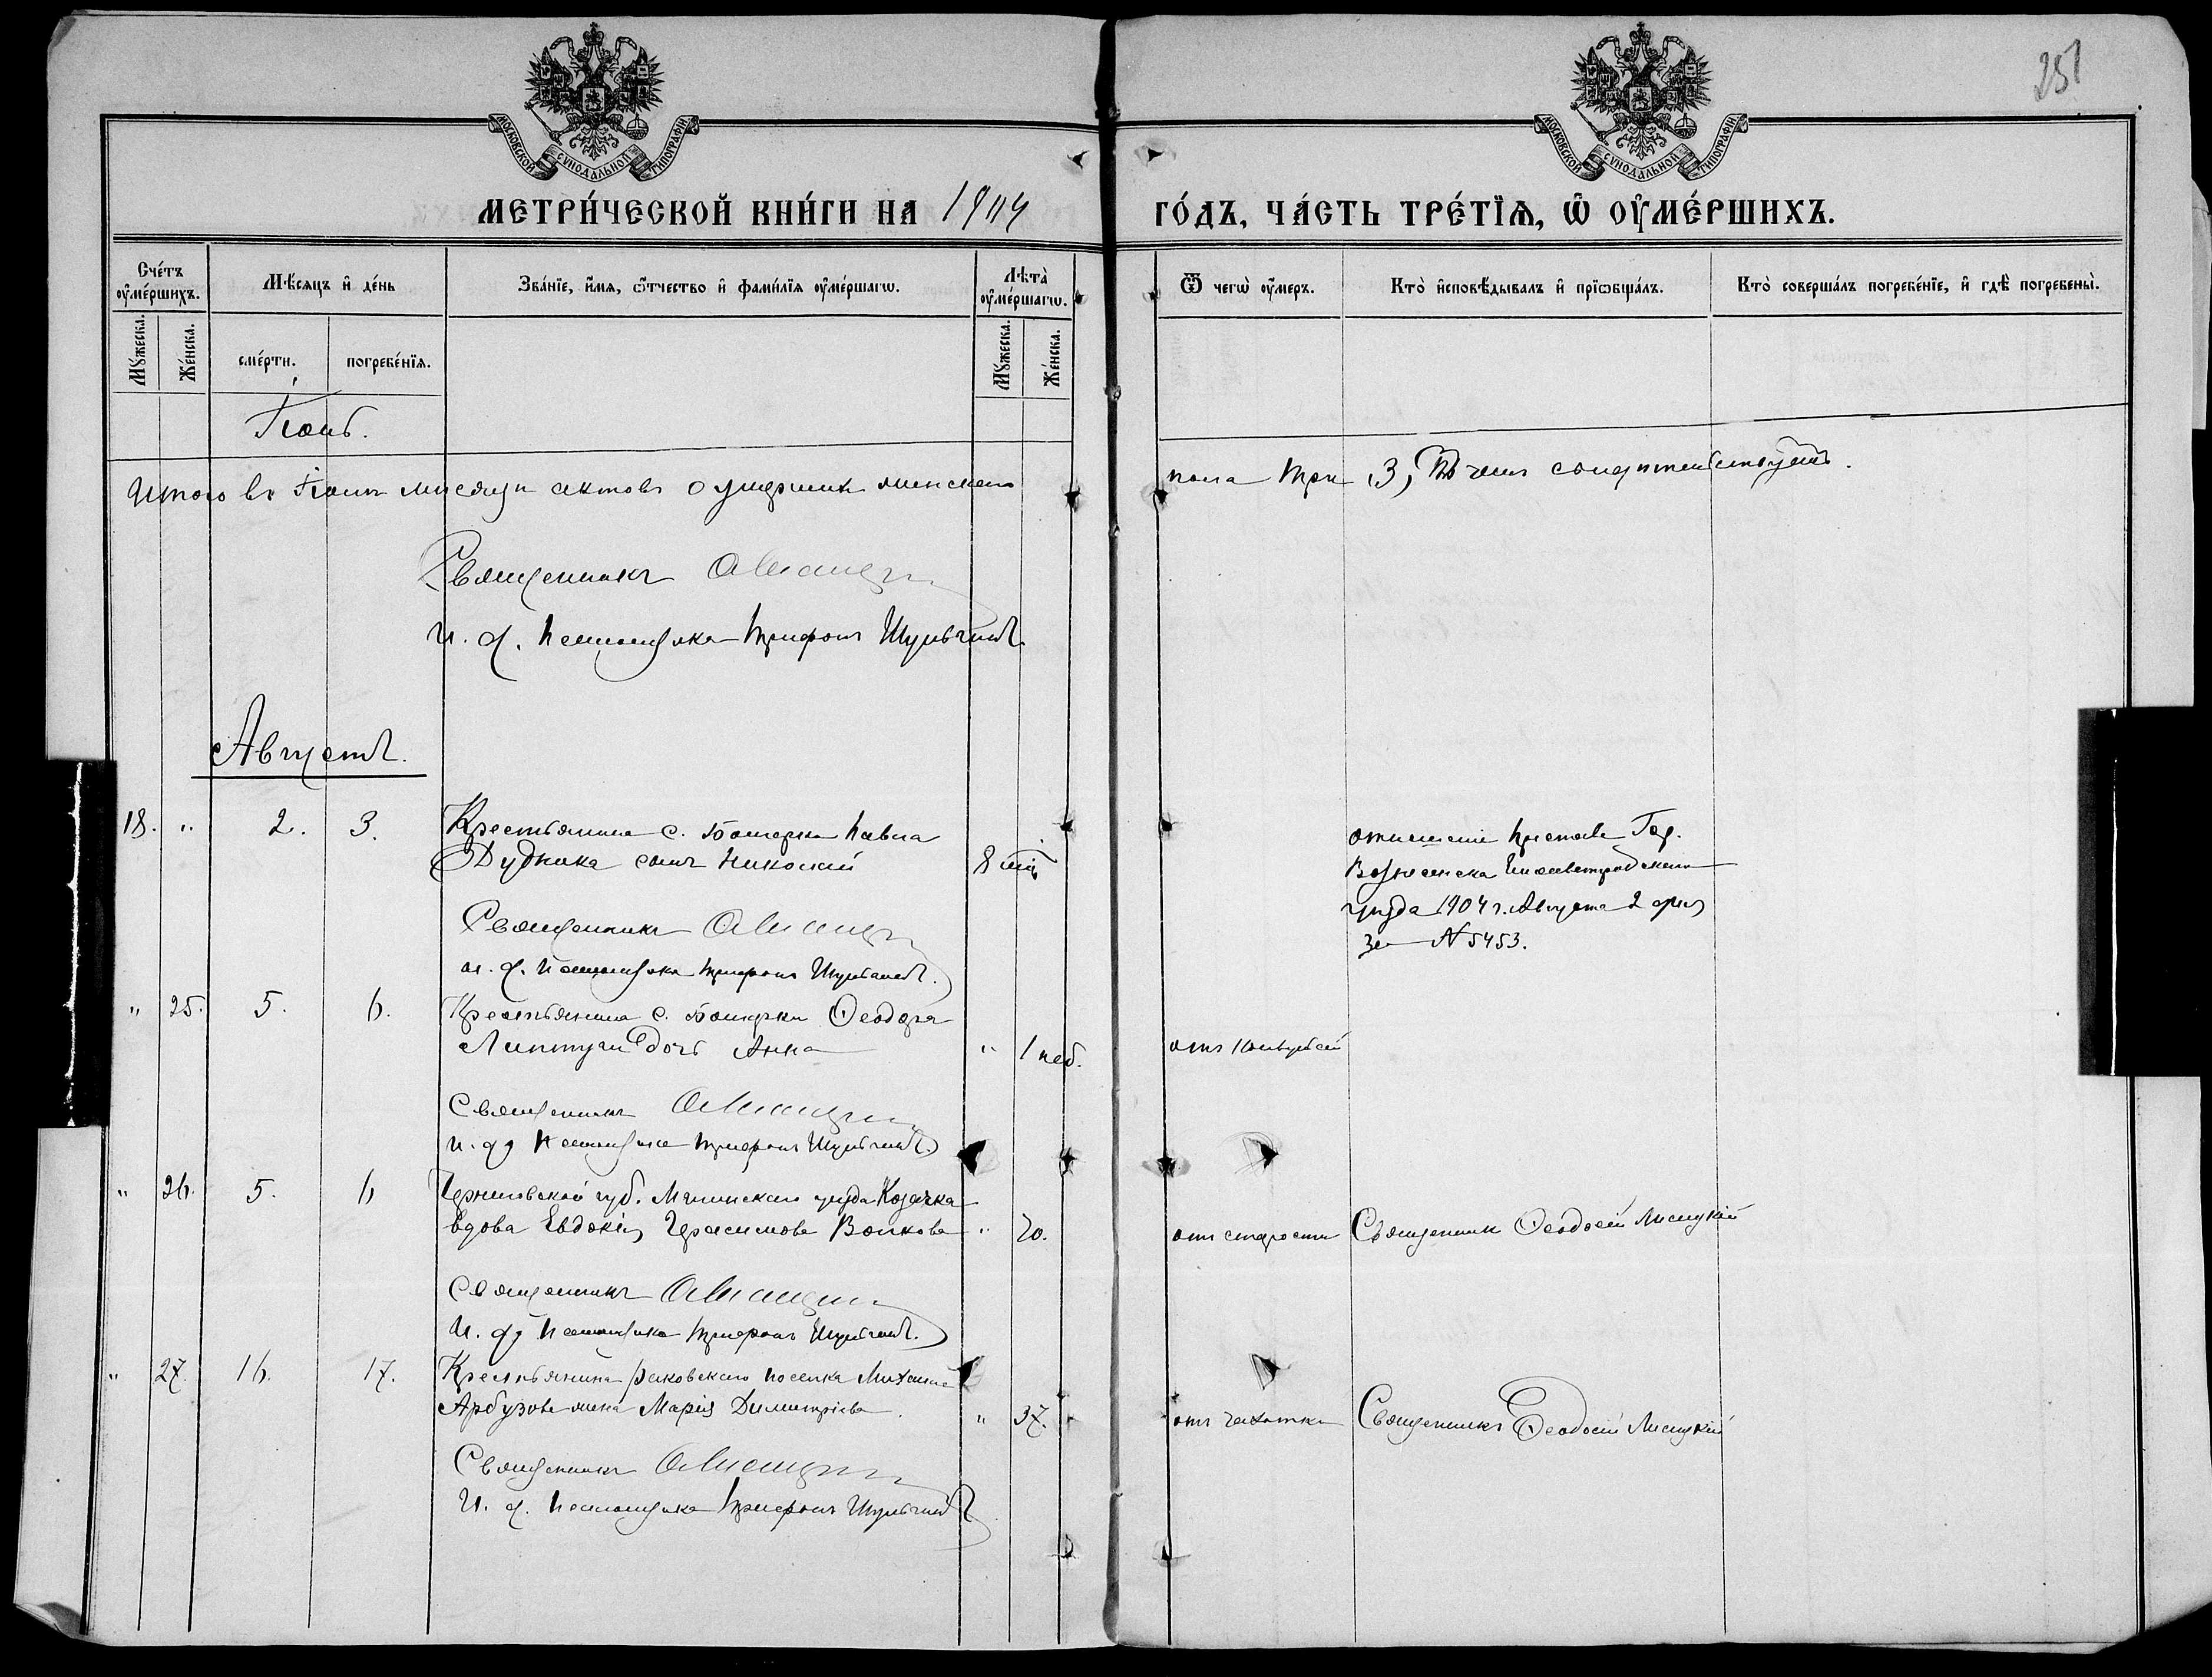 251
МОСКОВСКОЙ СѴНОДАЛЬНОЙ ТИПОГРАФІИ
МОСКОВСКОЙ СѴНОДАЛЬНОЙ ТИПОГРАФІИ
МЕТРИ́ЧЕСКОЙ КНИ́ГИ НА 1904 ГО́ДЪ, ЧА́СТЬ ТРЕ́ТЇѦ, Ѡ҆ ОУ҆МЕ́РШИХЪ.
Сче́тъ оу҆ме́ршихъ.
Мꙋ́жеска.
Же́нска.
Мѣ́сяцъ и҆ де́нь
сме́рти.
погребе́нїѧ.
Зва́нїе, и҆́мѧ, ѻ҆́тчество и҆ фами́лїѧ оу҆ме́ршагѡ.
Лѣта̀ оу҆ме́ршагѡ.
Мꙋ́жеска.
Же́нска.
Ѿ чегѡ̀ оу҆́меръ.
Кто̀ и҆сповѣ́дывалъ и҆ прїѡбща́лъ.
Кто̀ соверша́лъ погребе́нїе, и҆ гдѣ̀ погребены̀.
Іюль.
Итого въ Іюлѣ мѣсяцѣ актовъ о умершихъ женскаго пола три (3, въ чемъ свидѣтельствуемъ.
Священникъ
И. д. Псаломщика Трифонъ Шульгинъ
Августъ.
18. " 2. 3. Крестьянина с. Болгарки Павла
Дудника сынъ Николай 8 лѣтъ
отношеніе Пристава Гор.
Вознесенска Елисаветградскаго
уѣзда 1904 г. Августа 2 дня
за N 5453.
Священникъ
и. д. Псаломщика Трифонъ Шульгинъ.
" 25. 5. 6. Крестьянина с. Болгарки Ѳеодора
дочь Анна " 1 нед. отъ конвульсій
Священникъ
И. д. Псаломщика Трифонъ Шульгинъ
" 26. 5. 6 Черниговской губ. Мглинскаго уѣзда Козачка
вдова Евдокія Герасимова Волкова " 70. отъ старости Священникъ Ѳеодосій Лисицкій
Священникъ
И. д. Псаломщика Трифонъ Шульгинъ.
" 27. 16. 17. Крестьянина Раковскаго поселка Михаила
Арбузова жена Марія Димитріева. " 37. отъ чахотки Священникъ Ѳеодосій Лисицкій
Священникъ
И. д. Псаломщика Трифонъ Шульгинъ